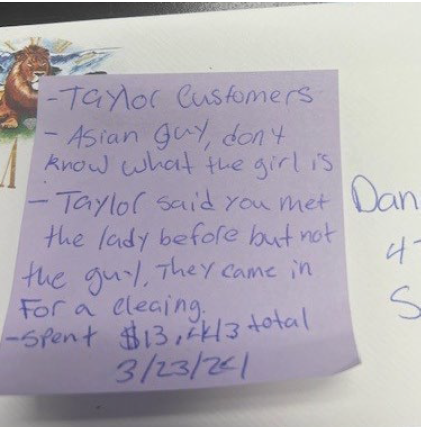 - Taylor Customers
- Asian guy, don't
know what the girl is
- Taylor said you met
the lady before but not
the guy. They came in
For a cleaing.
- spent $13,443 total
3/23/24
Dan
4
S